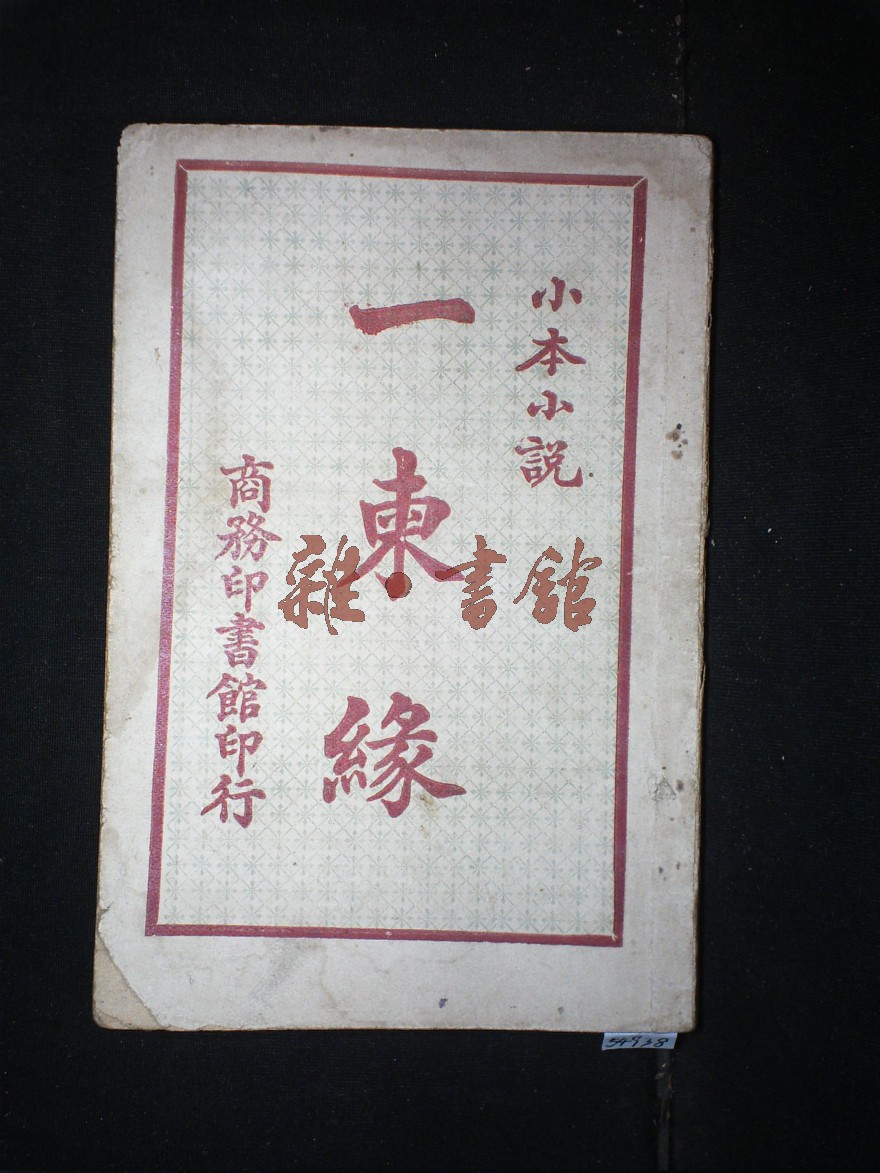 小本小説
一柬緣
商務印書館印行
雜•書館